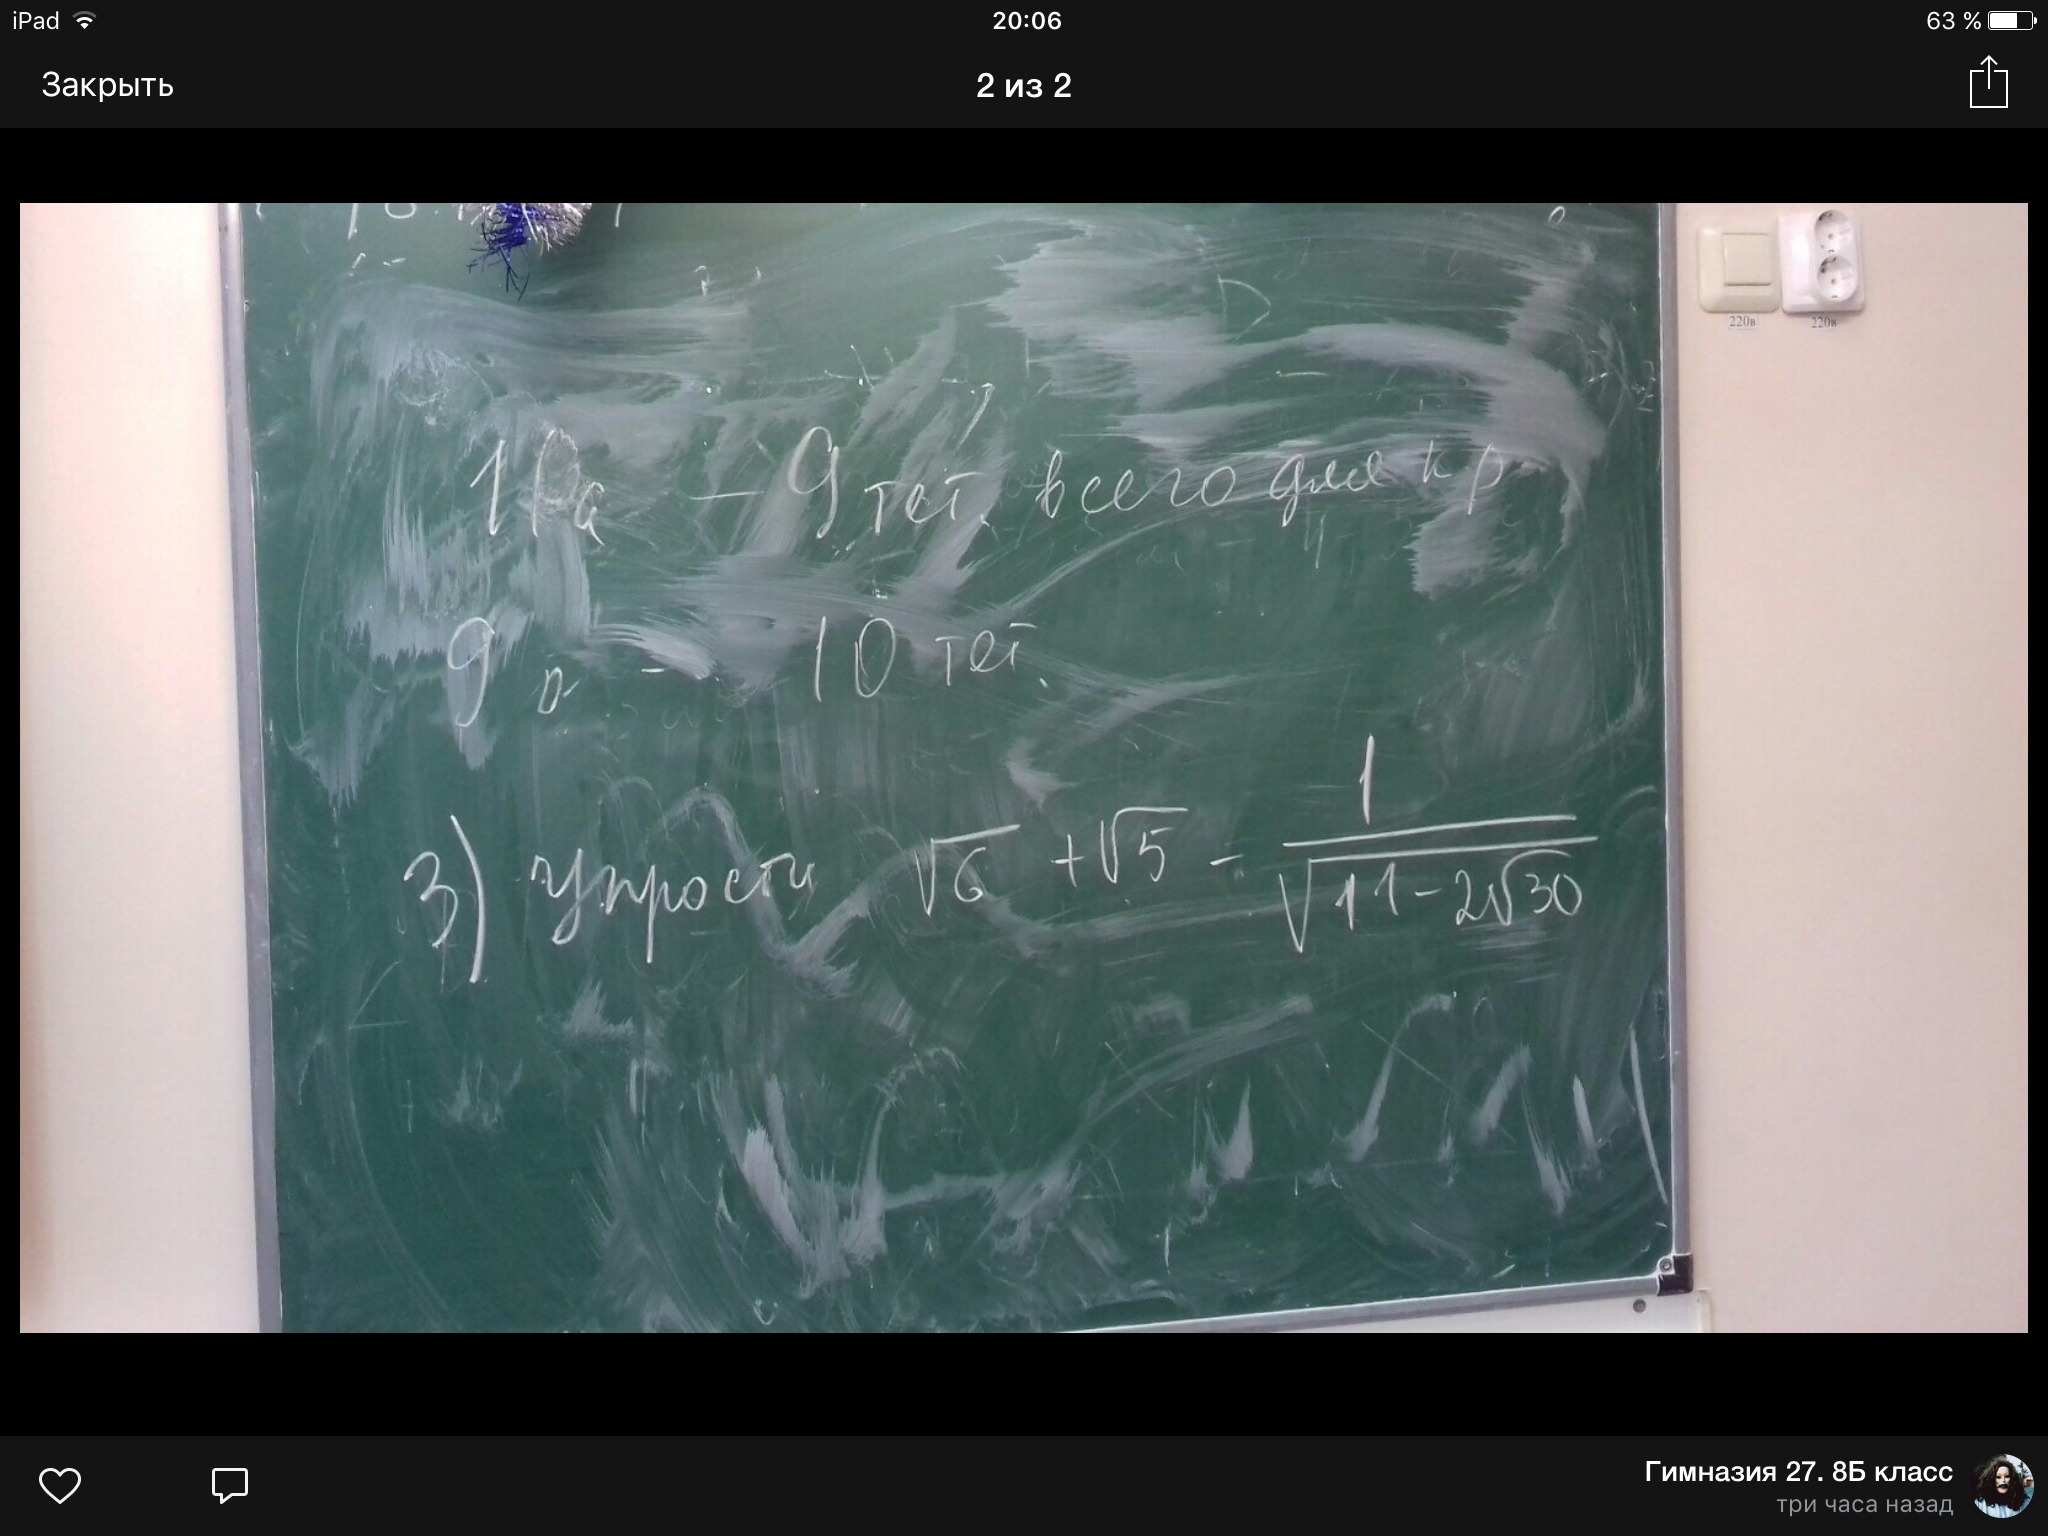 iPad 20:06 63 %
Закрыть 2 из 2
220в 220в
— 9 тет. всего для кр
10 тет.
3) упрости √6 + √5 - 1/√(11-2√30)
Гимназия 27. 8Б класс
три часа назад